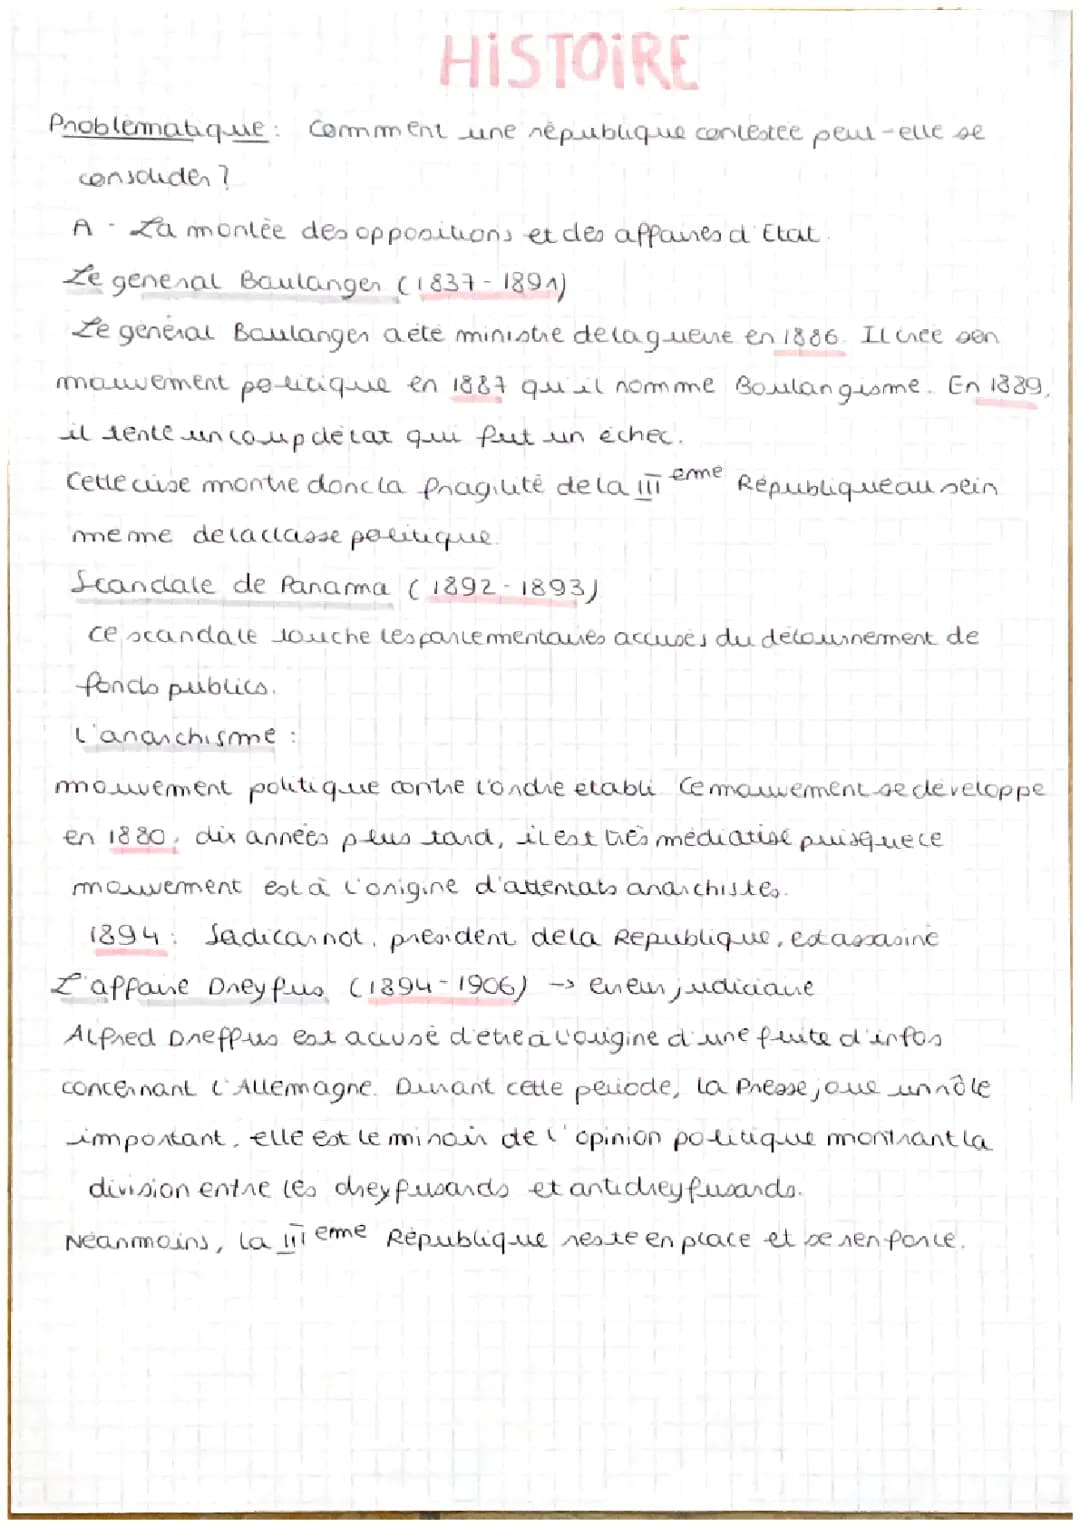 HiSTOiRE
Problématique : Comment une république contestée peut-elle se
consolider ?
A - La montée des oppositions et des affaires d'Etat.
Le general Boulanger (1837-1891)
Le général Boulanger a été ministre de la guerre en 1886. Il crée son
mouvement politique en 1887 qu'il nomme Boulangisme. En 1889,
il tente un coup d'état qui fut un échec.
Cette crise montre donc la fragilité de la III eme République au sein
meme de la classe politique.
Scandale de Panama (1892-1893)
ce scandale touche les parlementaires accusés du détournement de
fonds publics.
L'anarchisme :
mouvement politique contre l'ordre etabli. Ce mouvement se développe
en 1880, dix années plus tard, il est très médiatisé puisque ce
mouvement est à l'origine d'attentats anarchistes.
1894 : Sadicarnot, president de la République, est assasiné
L'affaire Dreyfus (1894-1906) → erreur judiciaire
Alfred Dreffus est accusé d'etre à l'origine d'une fuite d'infos
concernant l'Allemagne. Durant cette période, la Presse joue un rôle
important, elle est le miroir de l'opinion politique montrant la
division entre les dreyfusards et antidreyfusards.
Néanmoins, la III eme République reste en place et se renforce.